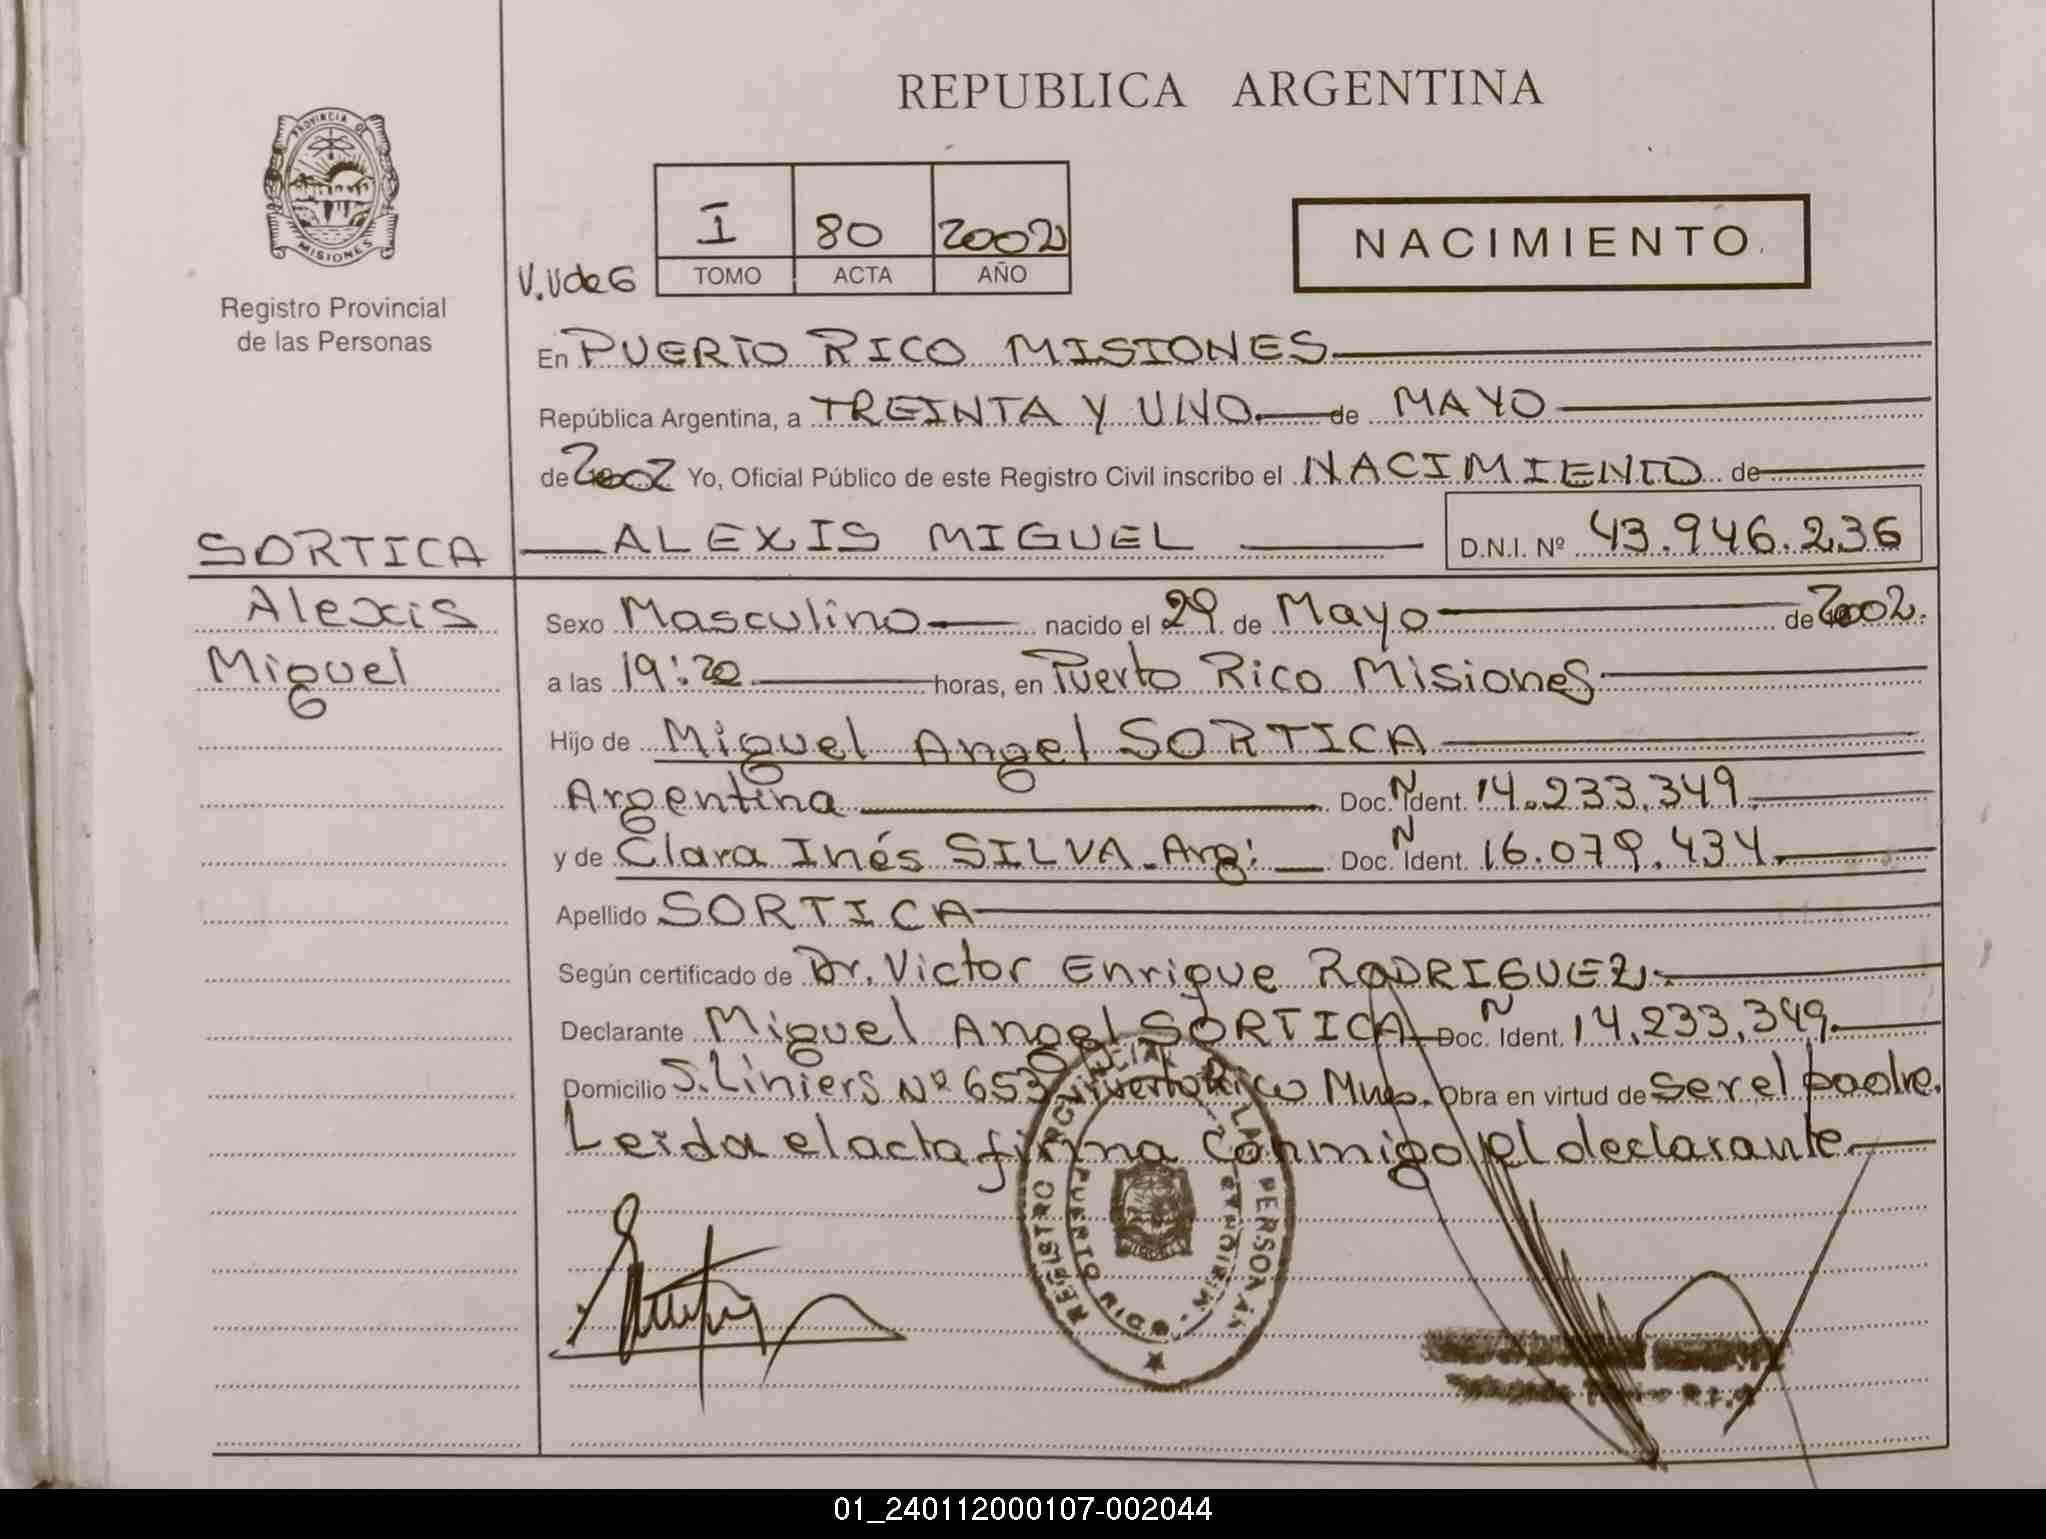 REPUBLICA ARGENTINA
PROVINCIA DE
MISIONES
Registro Provincial
de las Personas
I 80 2002
TOMO ACTA AÑO
NACIMIENTO
V.VdeG
En PUERTO RICO MISIONES
República Argentina, a TREINTA Y UNO de MAYO
de 2002 Yo, Oficial Público de este Registro Civil inscribo el NACIMIENTO de
SORTICA ALEXIS MIGUEL D.N.I. Nº 43.946.236
Alexis
Miguel
Sexo Masculino nacido el 29 de Mayo de 2002.
a las 19:20 horas, en Puerto Rico Misiones
Hijo de Miguel Angel SORTICA
Argentina Doc. N Ident. 14.233.349.
y de Clara Inés SILVA - Arg: Doc. N Ident. 16.079.434
Apellido SORTICA
Según certificado de Dr. Victor Enrique RODRIGUEZ.
Declarante Miguel Angel SORTICA Doc. N Ident. 14.233.349.
Domicilio S. Liniers Nº 653 Puerto Rico Mnes. Obra en virtud de ser el padre.
Leida el acta firma conmigo el declarante
REGISTRO PROVINCIAL DE LAS PERSONAS
PUERTO RICO - MISIONES
01_240112000107-002044